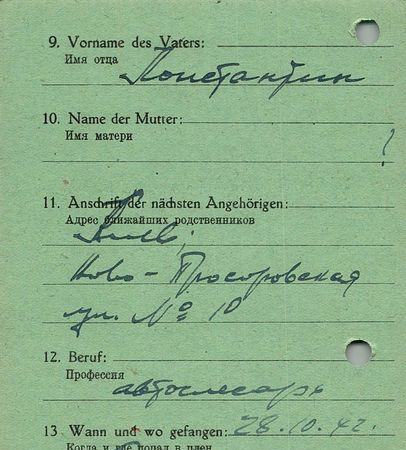 9. Vorname des Vaters:
Имя отца
Константин
10. Name der Mutter:
Имя матери
?
11. Anschrift der nächsten Angehörigen:
Адрес ближайших родственников
Киев,
Ново-Просоровская
ул. № 10
12. Beruf:
Профессия
автослесарь
13 Wann und wo gefangen: 28.10.42.
Когда и где попал в плен